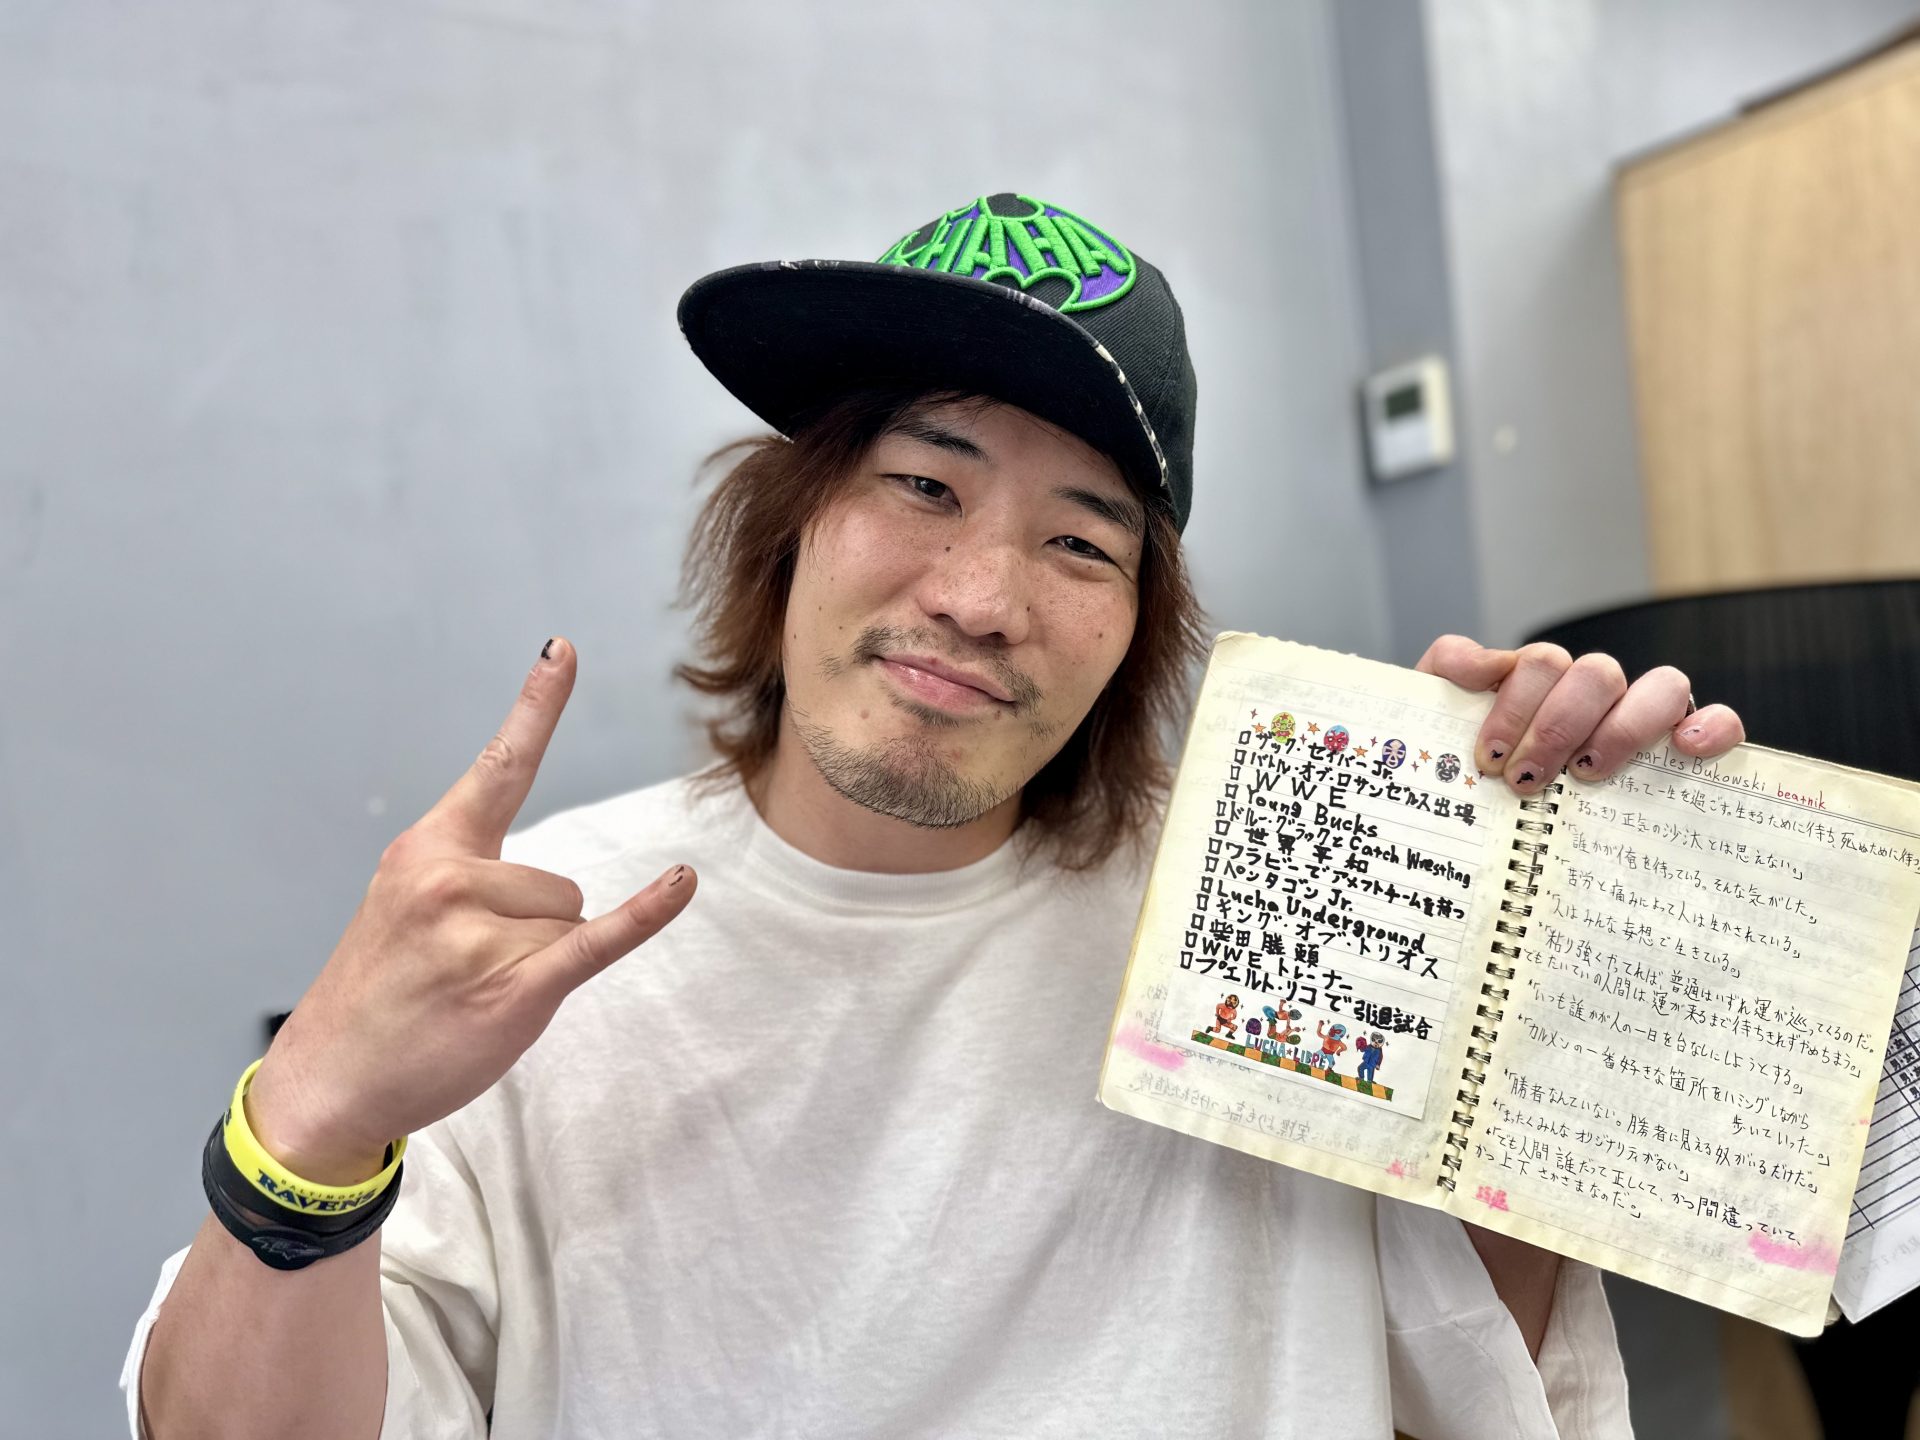 HAHA
BALTIMORE
RAVENS
□ザック・セイバーJr.
□バトル・オブ・ロサンゼルス出場
□WWE
□Young Bucks
□ドルー・グラックとCatch Wrestling
□世界平和
□ワラビーでアメフトチームを持つ
□ペンタゴンJr.
□Lucha Underground
□キング・オブ・トリオス
□柴田勝頼
□WWEトレーナー
□プエルト・リコで引退試合
LUCHA★LIBRE
Charles Bukowski beatnik
は待って一生を過ごす。生きるために待ち、死ぬために待つ
*「まるっきり正気の沙汰とは思えない。」
*「誰かが俺を待っている。そんな気がした。」
*「苦労と痛みによって人は生かされている。」
*「人はみんな妄想で生きている。」
*「粘り強くやってれば、普通はいずれ運が巡ってくるのだ。
でもたいていの人間は、運が来るまで待ちきれずやめちまう。」
*「いつも誰かが人の一日を台なしにしようとする。」
*「カルメンの一番好きな箇所をハミングしながら
歩いていった。」
*「勝者なんていない。勝者に見える奴がいるだけだ。」
*「まったくみんなオリジナリティがない。」
*「でも人間誰だって正しくて、かつ間違っていて、
かつ上下さかさまなのだ。」